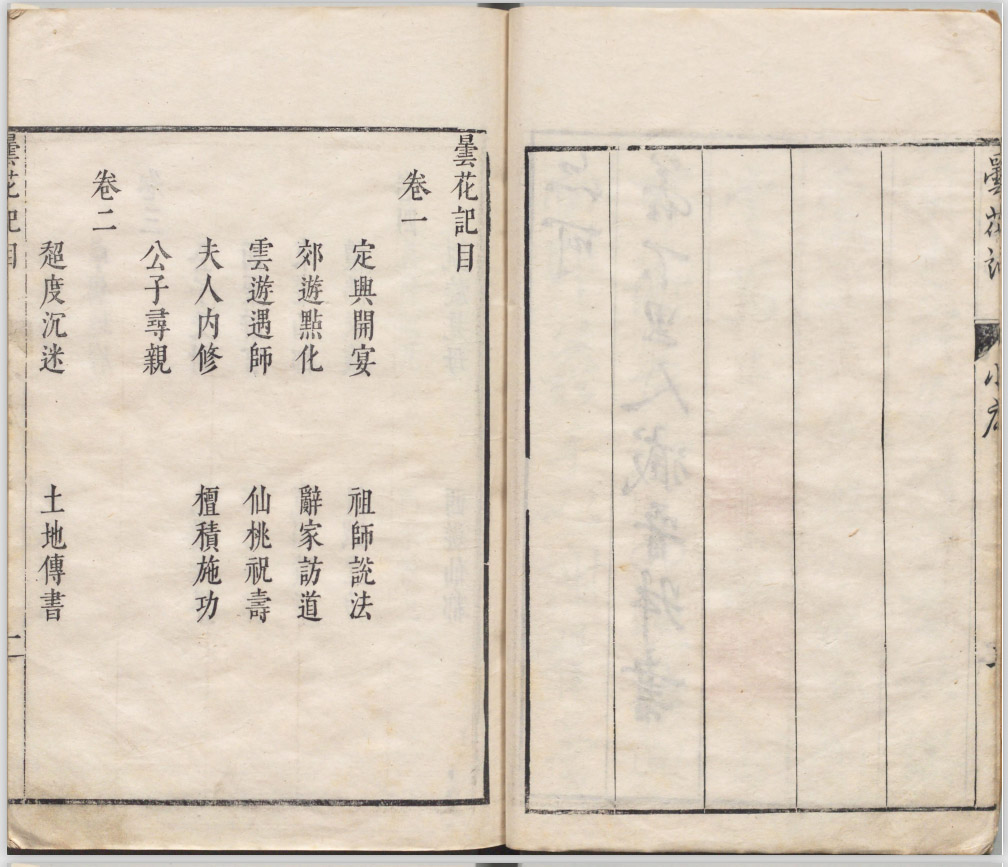 曇花記 小序
曇花記目
卷一
定興開宴 祖師說法
郊遊點化 辭家訪道
雲遊遇師 仙桃祝壽
夫人内修 檀積施功
公子尋親
卷二
超度沉迷 土地傳書
曇花記目 一